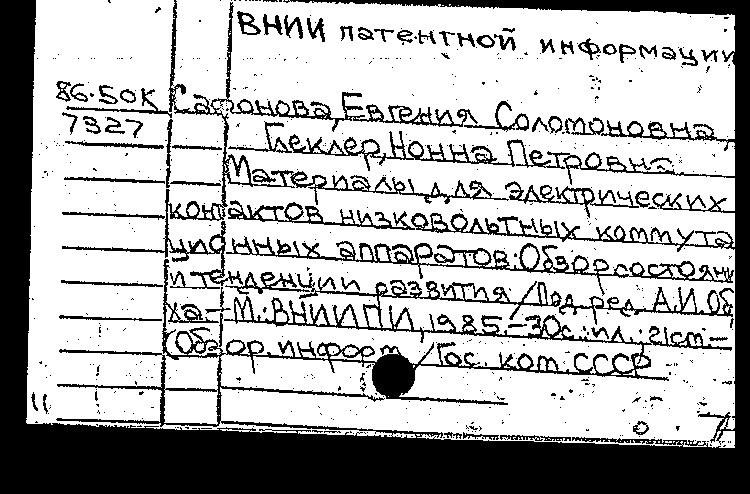 ВНИИ патентной информации
86.50К Сафонова, Евгения Соломоновна,
7327 Геклер, Нонна Петровна
Материалы для электрических
контактов низковольтных коммута
ционных аппаратов: Обзор состояни
и тенденции развития / Под ред. А.И. Об
ха.- М.: ВНИИПИ, 1985.- 30с.: ил.; 21см.-
(Обзор. информ / Гос. ком. СССР
11